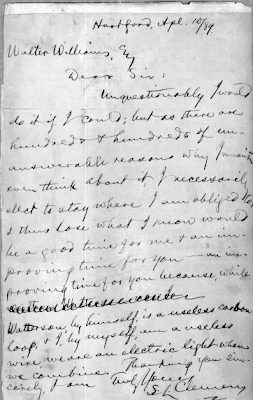 Hartford, Apl. 10/89.
Walter Williams, Esq
Dear Sir:
Unquestionably I would
do it if I could; but as there are
hundreds & hundreds of un-
answerable reasons why I mustn't
even think about it, I necessarily
elect to stay where I am obliged to,
& thus lose what I know would
be a good time for me & an im-
proving time for you — an im-
proving time for you because, while
Watterson, by himself, is a useless carbon
loop, & I, by myself, am a useless
wire, we are an electric light when
we combine. Thanking you sin-
cerely, I am
Truly Yours
S L Clemens